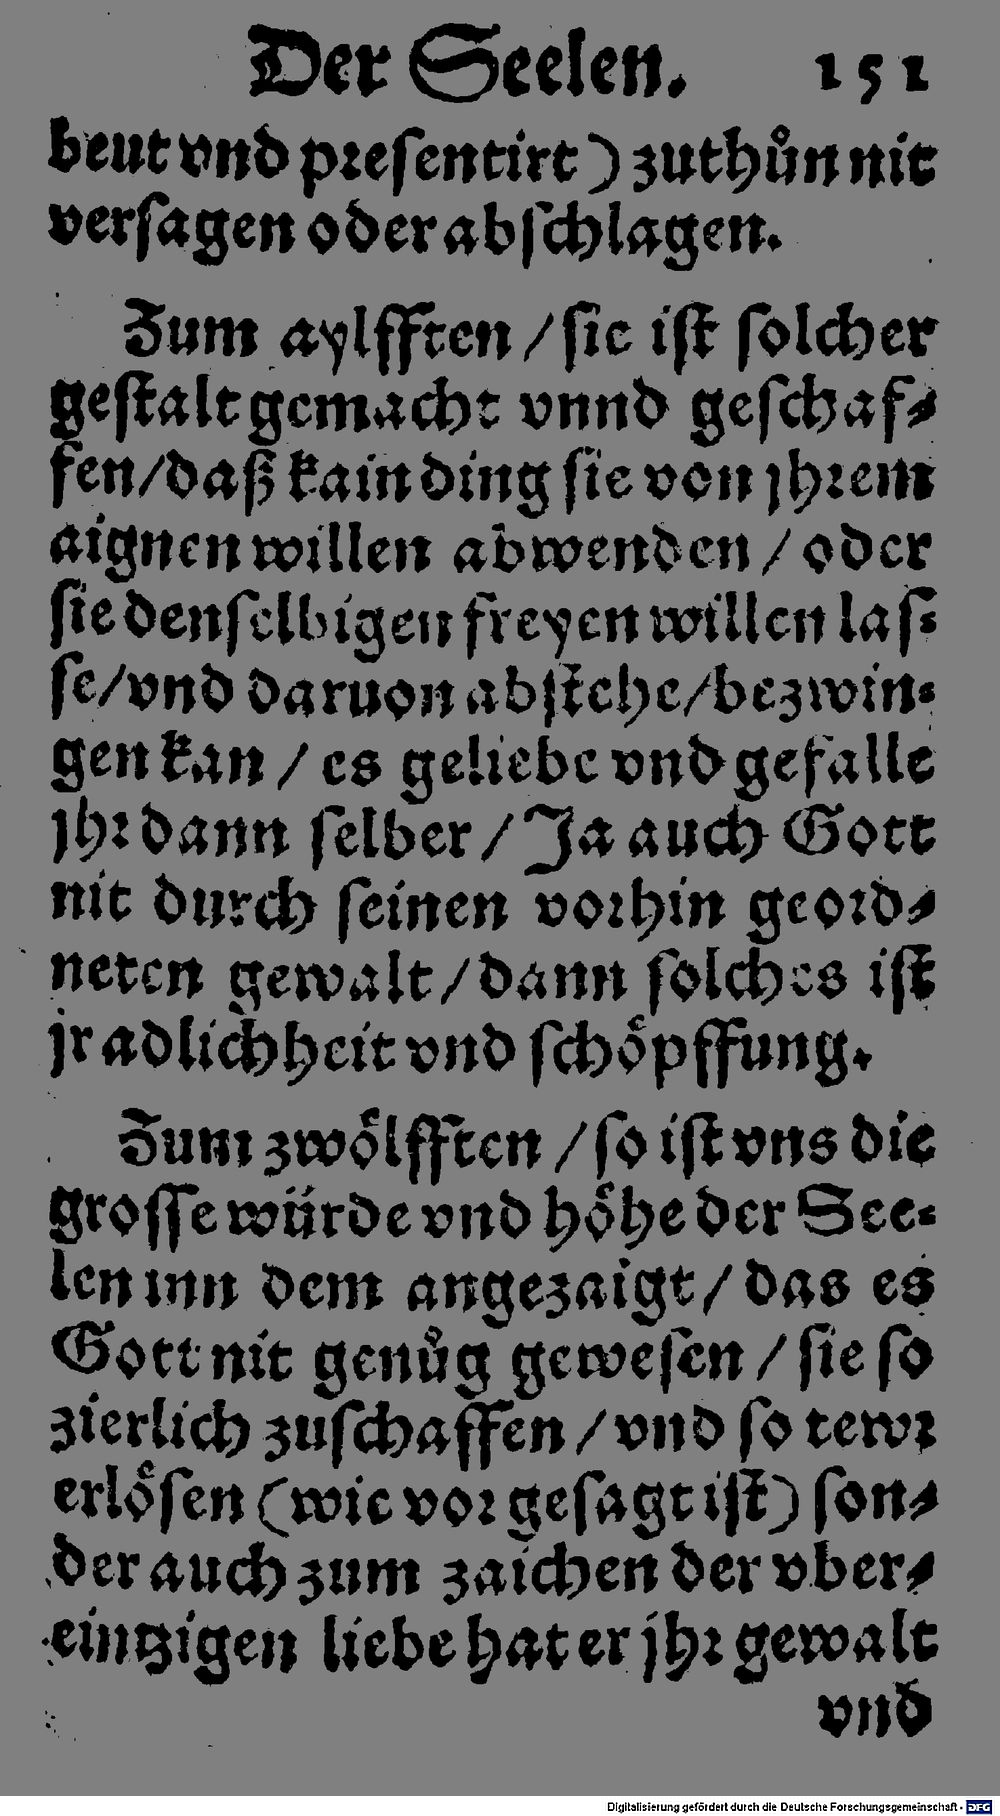 Der Seelen. 151
beut vnd presentirt) zuthůn nit
versagen oder abschlagen.
Zum aylfften / sie ist solcher
gestalt gemacht vnnd geschaf⸗
fen / daß kain ding sie von jhrem
aignen willen abwenden / oder
sie denselbigen freyen willen las⸗
se / vnd daruon abstehe / bezwin⸗
gen kan / es geliebe vnd gefalle
jhr dann selber / Ja auch Gott
nit durch seinen vorhin geord⸗
neten gewalt / dann solches ist
jr adlichheit vnd schöpffung.
Zum zwölfften / so ist vns die
grosse würde vnd höhe der See⸗
len inn dem angezaigt / das es
Gott nit genůg gewesen / sie so
zierlich zuschaffen / vnd so tewr
erlösen (wie vor gesagt ist) son⸗
der auch zum zaichen der vber⸗
eintzigen liebe hat er jhr gewalt
vnd
Digitalisierung gefördert durch die Deutsche Forschungsgemeinschaft - DFG